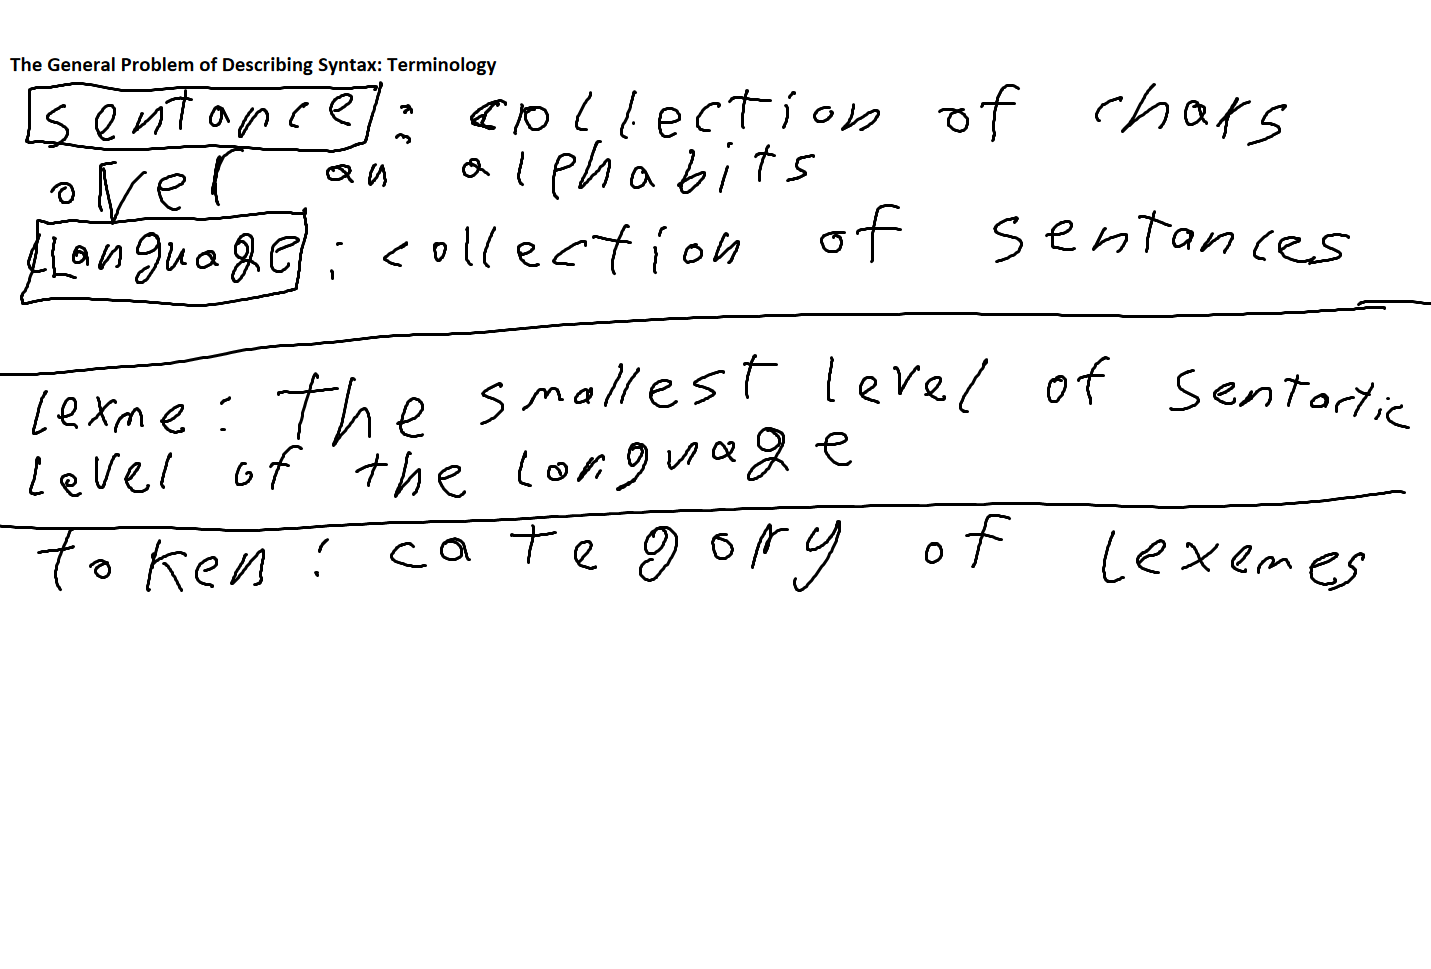 The General Problem of Describing Syntax: Terminology
sentance: collection of chars
over an alphabits
Language: collection of sentances
lexme: the smallest level of sentactic
level of the language
token: category of lexemes